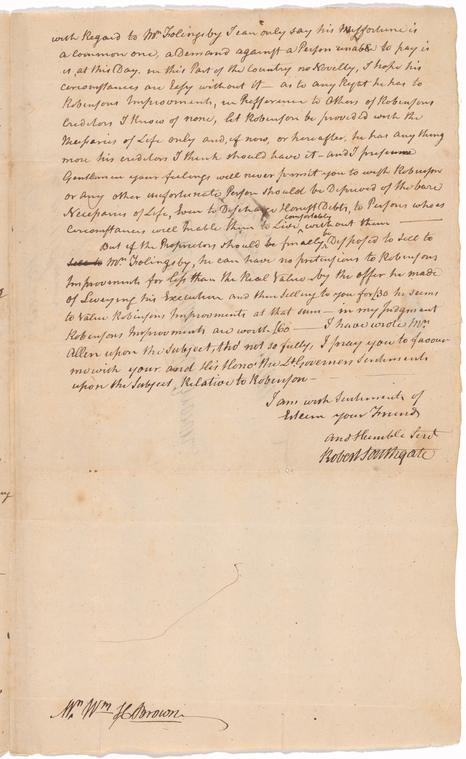 with Regard to Mr Folingsby I can only say his Misfortune is
a Common one, a Demand against a Person unable to pay is
is, at this Day, in this Part of the Country no Novelty, I hope his
circumstances are Easy without it — as to any Right he has to
Robinsons Improvements, in Refference to Others of Robinsons
Creditors I Know of none, let Robinson be provided with the
Necessaries of Life only and, if now, or hereafter, he has any thing
more his creditors I think should have it — and I presume
Gentlemen your feelings will never permit you to wish Robinson
or any other unfortunate Person should be Deprived of the bare
Necessaries of Life, Even to Discharge Honest Debts, to Persons whose
comfortably
Circumstances will Enable them to Live without them —
But if the Proprietors should be finally Disposed to Sell to
Mr Folingsby, he can have no pretensions to Robinsons
Improvements for less than the Real Value — by the offer he made
of Levying his Execution and then selling to you for £30 he seems
to Value Robinsons Improvements at that sum — in my Judgment
Robinsons Improvements are worth £60 — I have wrote Mr
Allen upon the Subject, tho not so fully, I pray you to favour
me with your and His Honor the Lt Governors Sentiments
upon the Subject, Relative to Robinson —
I am with Sentiments of
Esteem your Friend
and Humble Servt
Robert Southgate
Mr Wm Brown